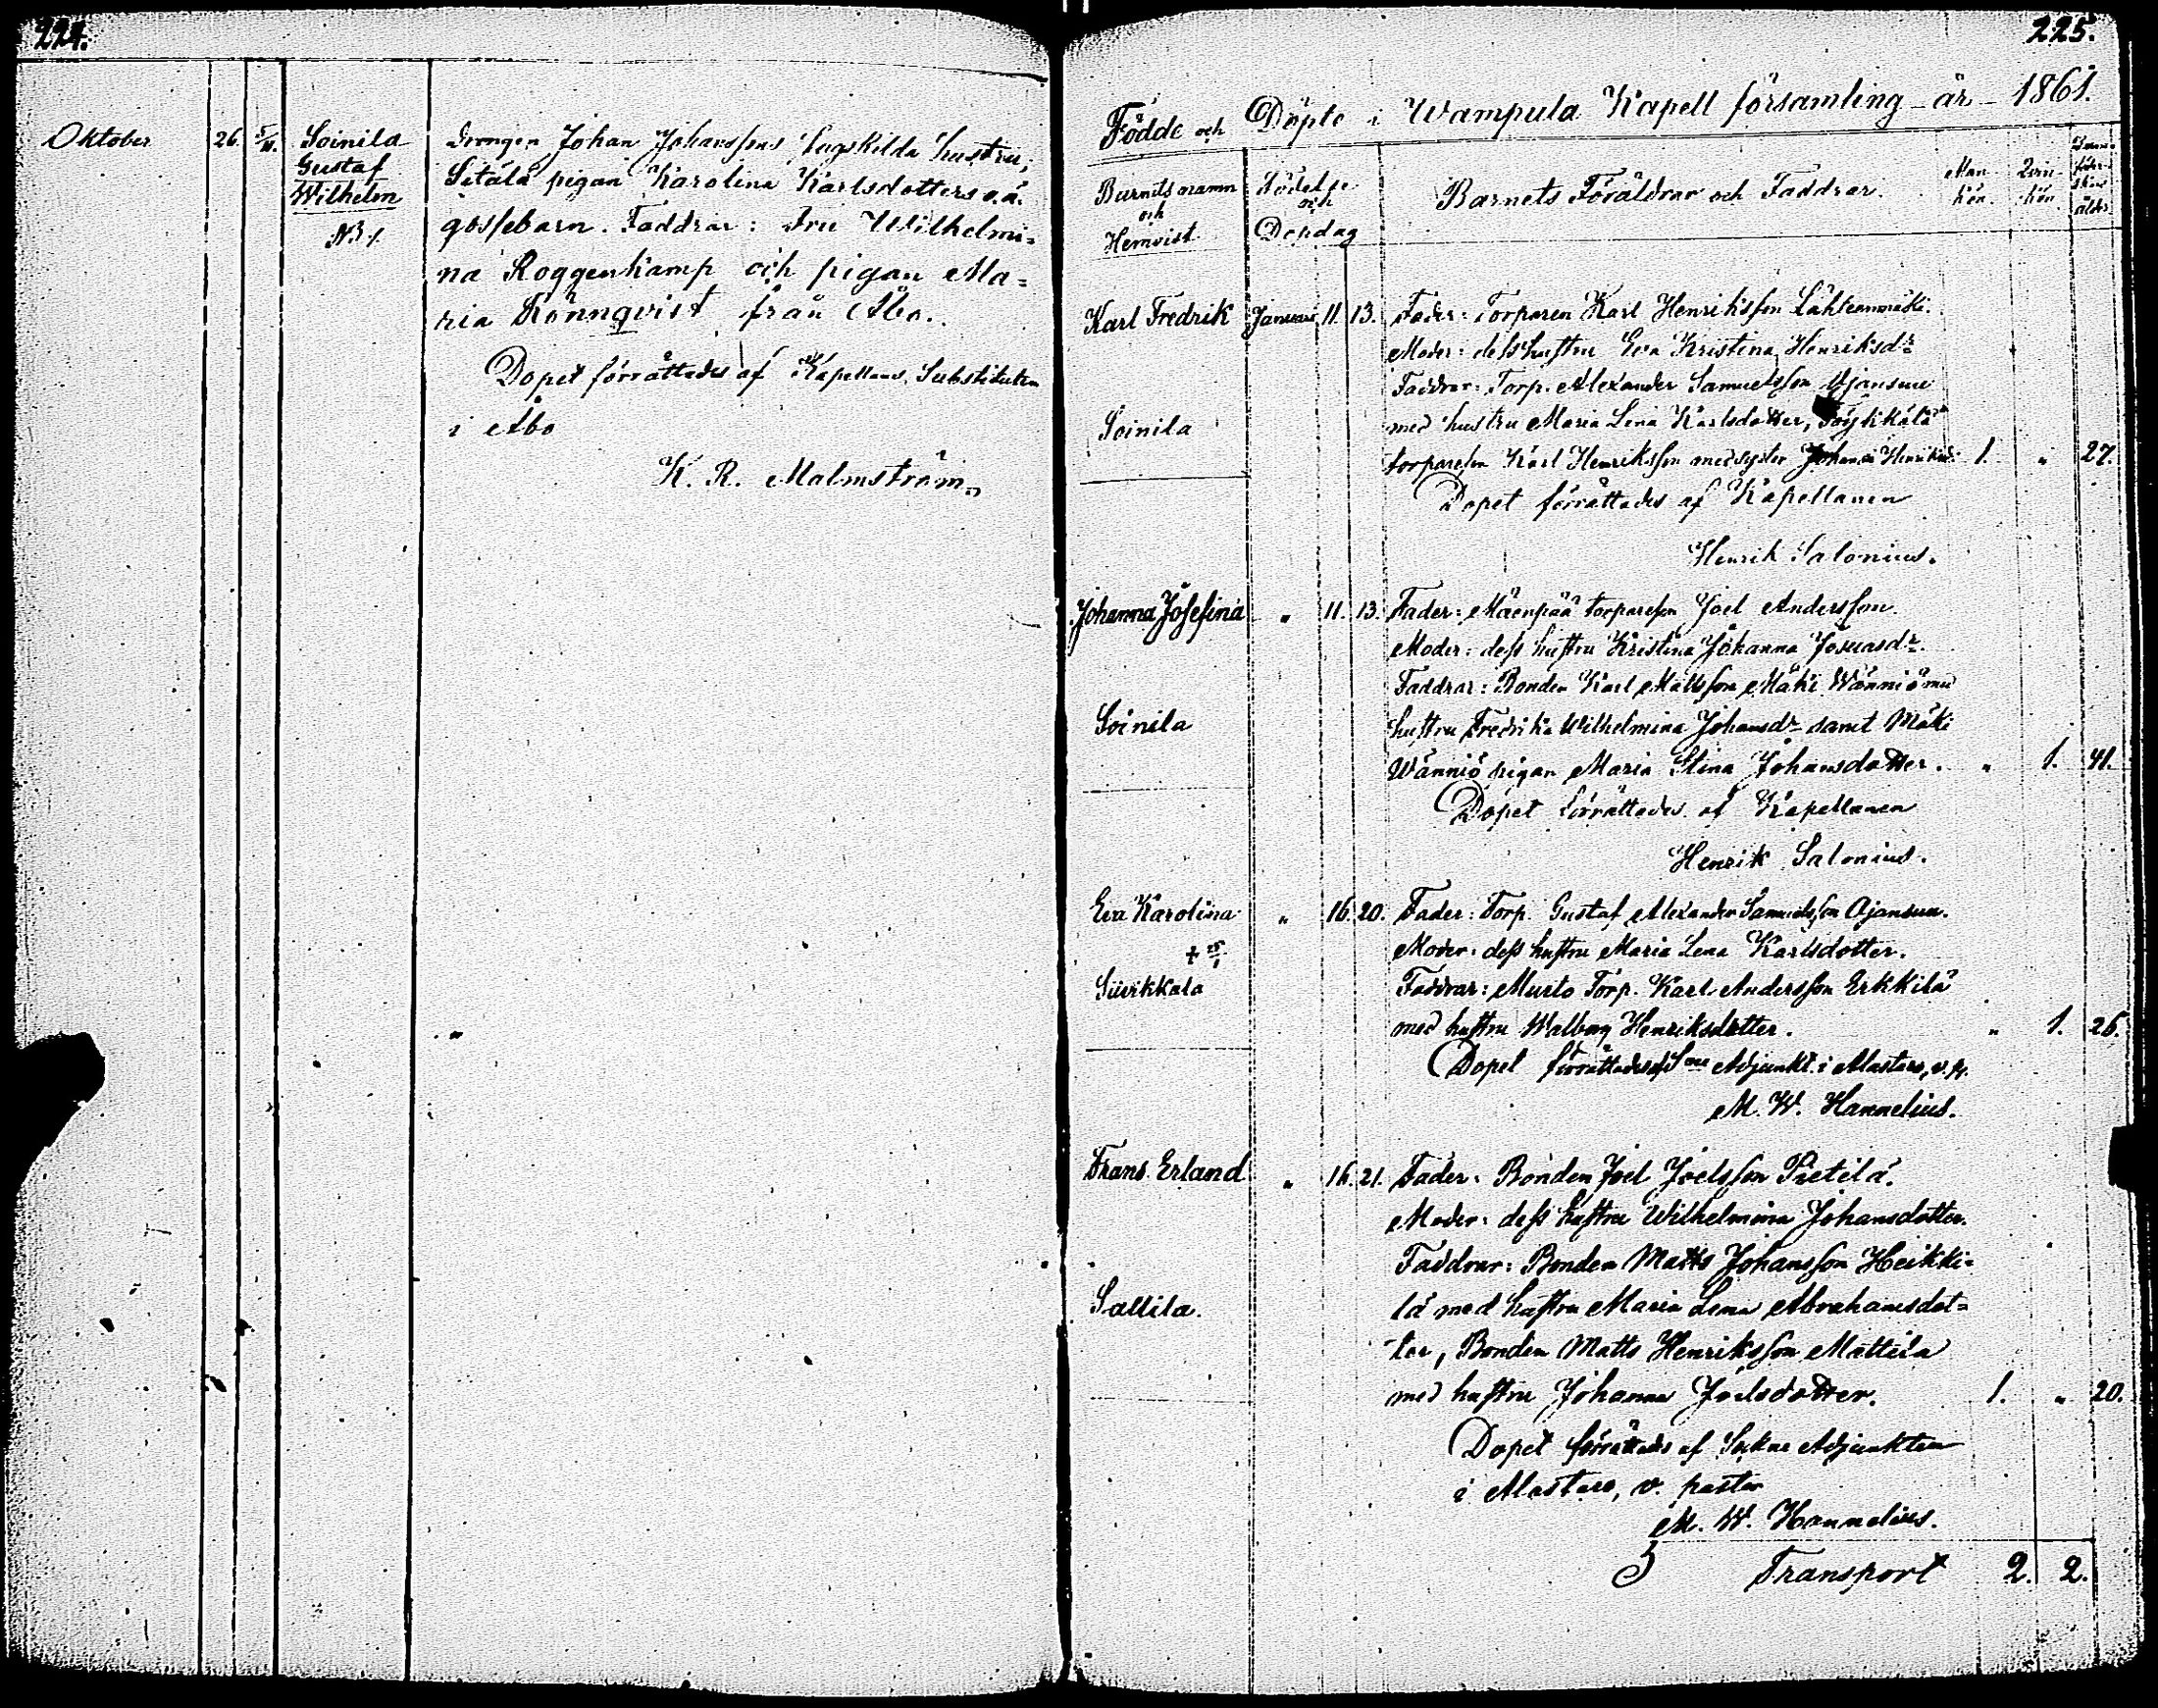 224.
Oktober 26. 5/11. Soinila
Gustaf
Wilhelm
N3 1.
Drengen Johan Johanssons lagskilda hustru,
Sitälä pigan Karolina Karlsdotters o.ä.
gossebarn. Faddrar: Fru Wilhelmi=
na Roggenkamp och pigan Ma=
ria Rönnqvist från Åbo.
Dopet förrättades af Kapellans Substituten
i Åbo
K. R. Malmström.
225.
Födde och Döpte i Wampula Kapell församling år 1861.
Barnets namn
och
Hemvist
Födelse
och
Dopdag
Barnets Föräldrar och Faddrar.
Man
kön.
Qvin
kön.
ålder
Karl Fredrik Januari 11. 13. Fader: Torparen Karl Henriksson Lähteenmäki.
Moder: dess hustru Eva Kristina Henriksdr
Faddrar: Torp. Alexander Samuelsson Ojansuu
Soinila med hustru Maria Lena Karlsdotter,
torpareson Karl Henriksson med syster Johanna Henriksd. 1. " 27.
Dopet förrättades af Kapellanen
Henrik Salonius.
Johanna Josefina " 11. 13. Fader: Mäenpää torpareson Joel Andersson
Moder: dess hustru Kristina Johanna Josuasdr.
Faddrar: Bonden Karl Mattsson Mäki Wänniö med
Soinila hustru Fredrika Wilhelmina Johansdr samt Mäki
Wänniö pigan Maria Stina Johansdotter. " 1. 41.
Dopet förrättades af Kapellanen
Henrik Salonius.
Eva Karolina " 16. 20. Fader: Torp. Gustaf Alexander Samuelsson Ojansuu.
+ 25/1
Moder: dess hustru Maria Lena Karlsdotter.
Sūvikkala Faddrar: Murto Torp. Karl Andersson Erkkilä
med hustru Walborg Henriksdotter. " 1. 26.
Dopet förrättades af Sne Adjunkt. i Alastaro, v. p.
M. W. Hannelius.
Frans Erland " 16. 21. Fader: Bonden Joel Joelsson Pietilä.
Moder: dess hustru Wilhelmina Johansdotter.
Faddrar: Bonden Matts Johansson Heikki=
Sallila. lä med hustru Maria Lena Abrahamsdot=
ter, Bonden Matts Henriksson Mattila
med hustru Johanna Joelsdotter. 1. " 20.
Dopet förrättades af Sockne Adjunkten
i Alastaro, v. pastor
M. W. Hannelius.
Transport 2. 2.